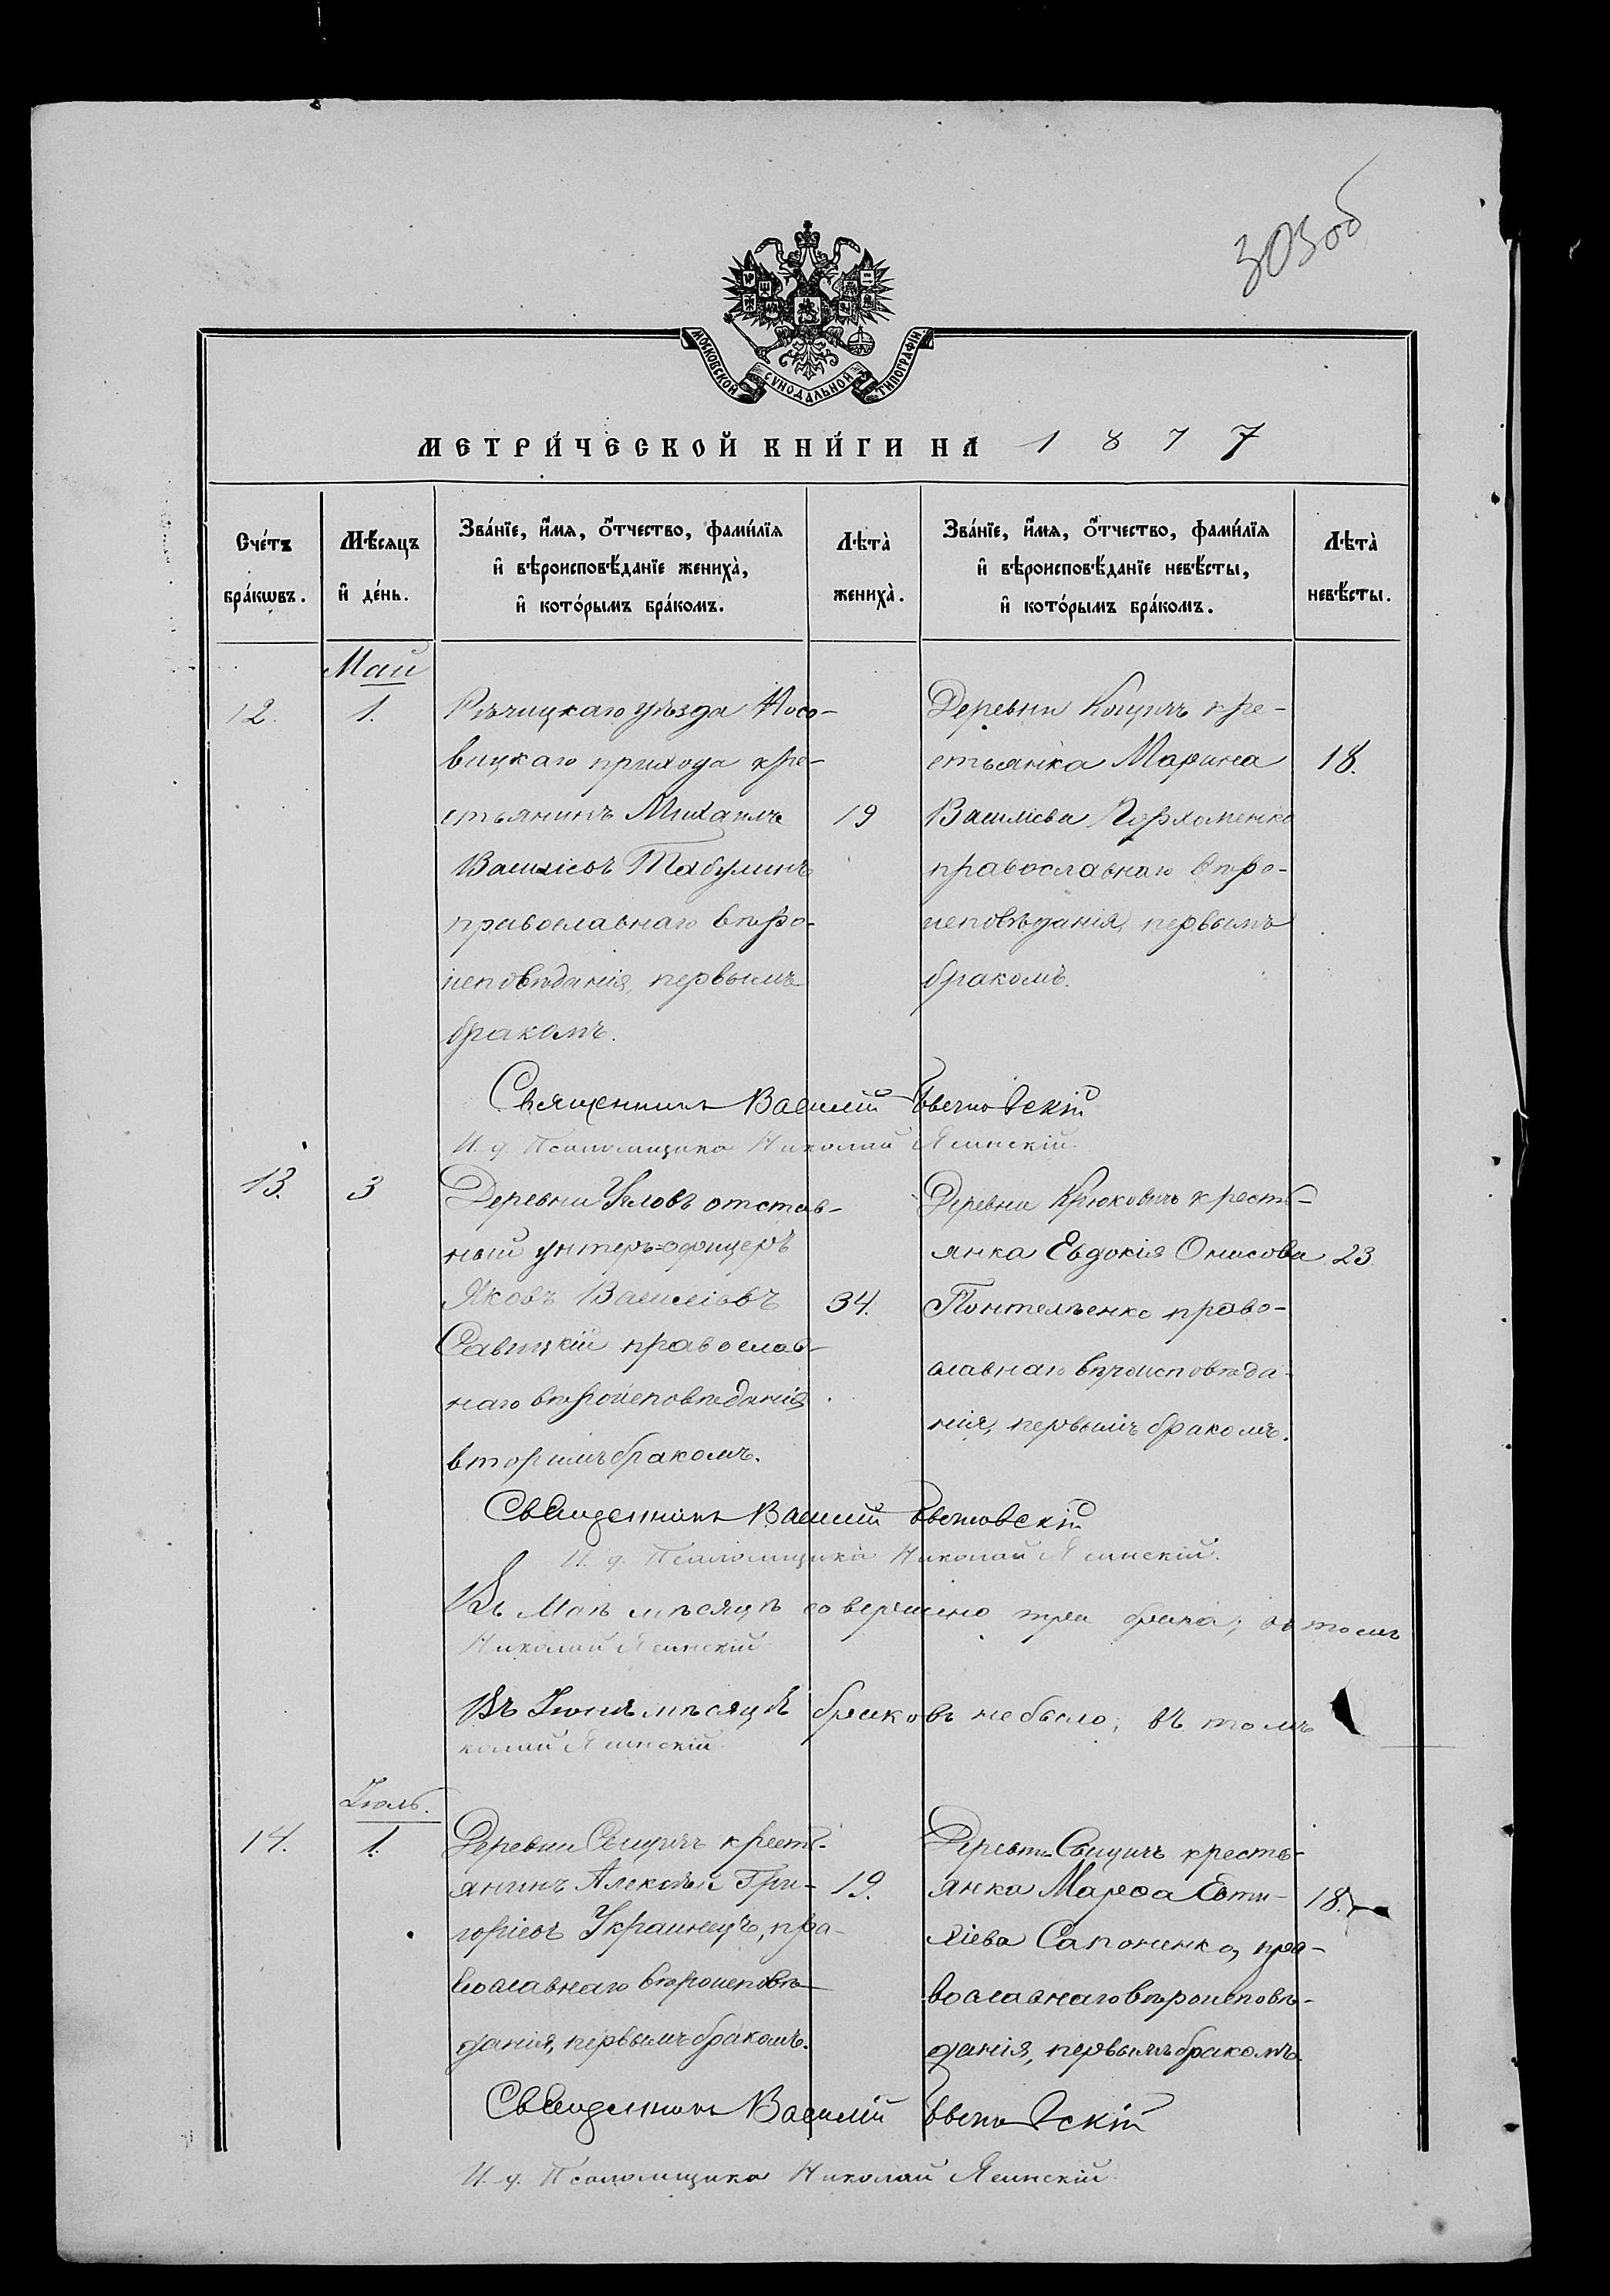 303об
МОСКОВСКОЙ СѴНОДАЛЬНОЙ ТИПОГРАФІИ
МЕТРИ́ЧЕСКОЙ КНИ́ГИ НА 1877
Сче́тъ бра́кѡвъ.
Мѣ́сяцъ и҆ де́нь.
Зва́нїе, и҆́мя, ѻ҆́тчество, фами́лїя
и҆ вѣроисповѣ́данїе жениха̀,
и҆ кото́рымъ бра́комъ.
Лѣта̀ жениха̀.
Зва́нїе, и҆́мя, ѻ҆́тчество, фами́лїя
и҆ вѣроисповѣ́данїе невѣ́сты,
и҆ кото́рымъ бра́комъ.
Лѣта̀ невѣ́сты.
Май
12.
1.
Рѣчицкаго уѣзда Носо-
вицкаго прихода кре-
стьянинъ Михаилъ
Василіевъ Табулинъ
православнаго вѣро-
исповѣданія, первымъ
бракомъ.
19
Деревни кре-
стьянка Марина
Василіева Порхоменко
православнаго вѣро-
исповѣданія, первымъ
бракомъ.
18.
Священникъ Василій
И. д. Псаломщика Николай Ясинскій
13.
3
Деревни отстав-
ный унтеръ=офицеръ
Яковъ Василіевъ
Савицкій православ-
наго вѣроисповѣданія
вторимъ бракомъ.
34.
Деревни Крюковичъ кресть-
янка Евдокія Онисова
Понтелѣенко право-
славнаго вѣроисповѣда-
нія, первымъ бракомъ.
23.
Священникъ Василій
И. д. Псаломщика Николай Ясинскій.
Въ Маѣ мѣсяцѣ совершено три брака; въ томъ
Николай Ясинскій
Въ Іюнѣ мѣсяцѣ браковъ не было; въ томъ
колай Ясинскій
Іюль.
14.
1.
Деревни кресть-
янинъ Алексѣй Гри-
горіевъ Украинецъ, пра-
вославнаго вѣроисповѣ-
данія, первымъ бракомъ.
19.
Деревни кресть-
янка Марѳа Евти-
хіева Сапоненко, пра-
вославнаго вѣроисповѣ-
данія, первымъ бракомъ.
18.
Священникъ Василій
И. д. Псаломщика Николай Ясинскій